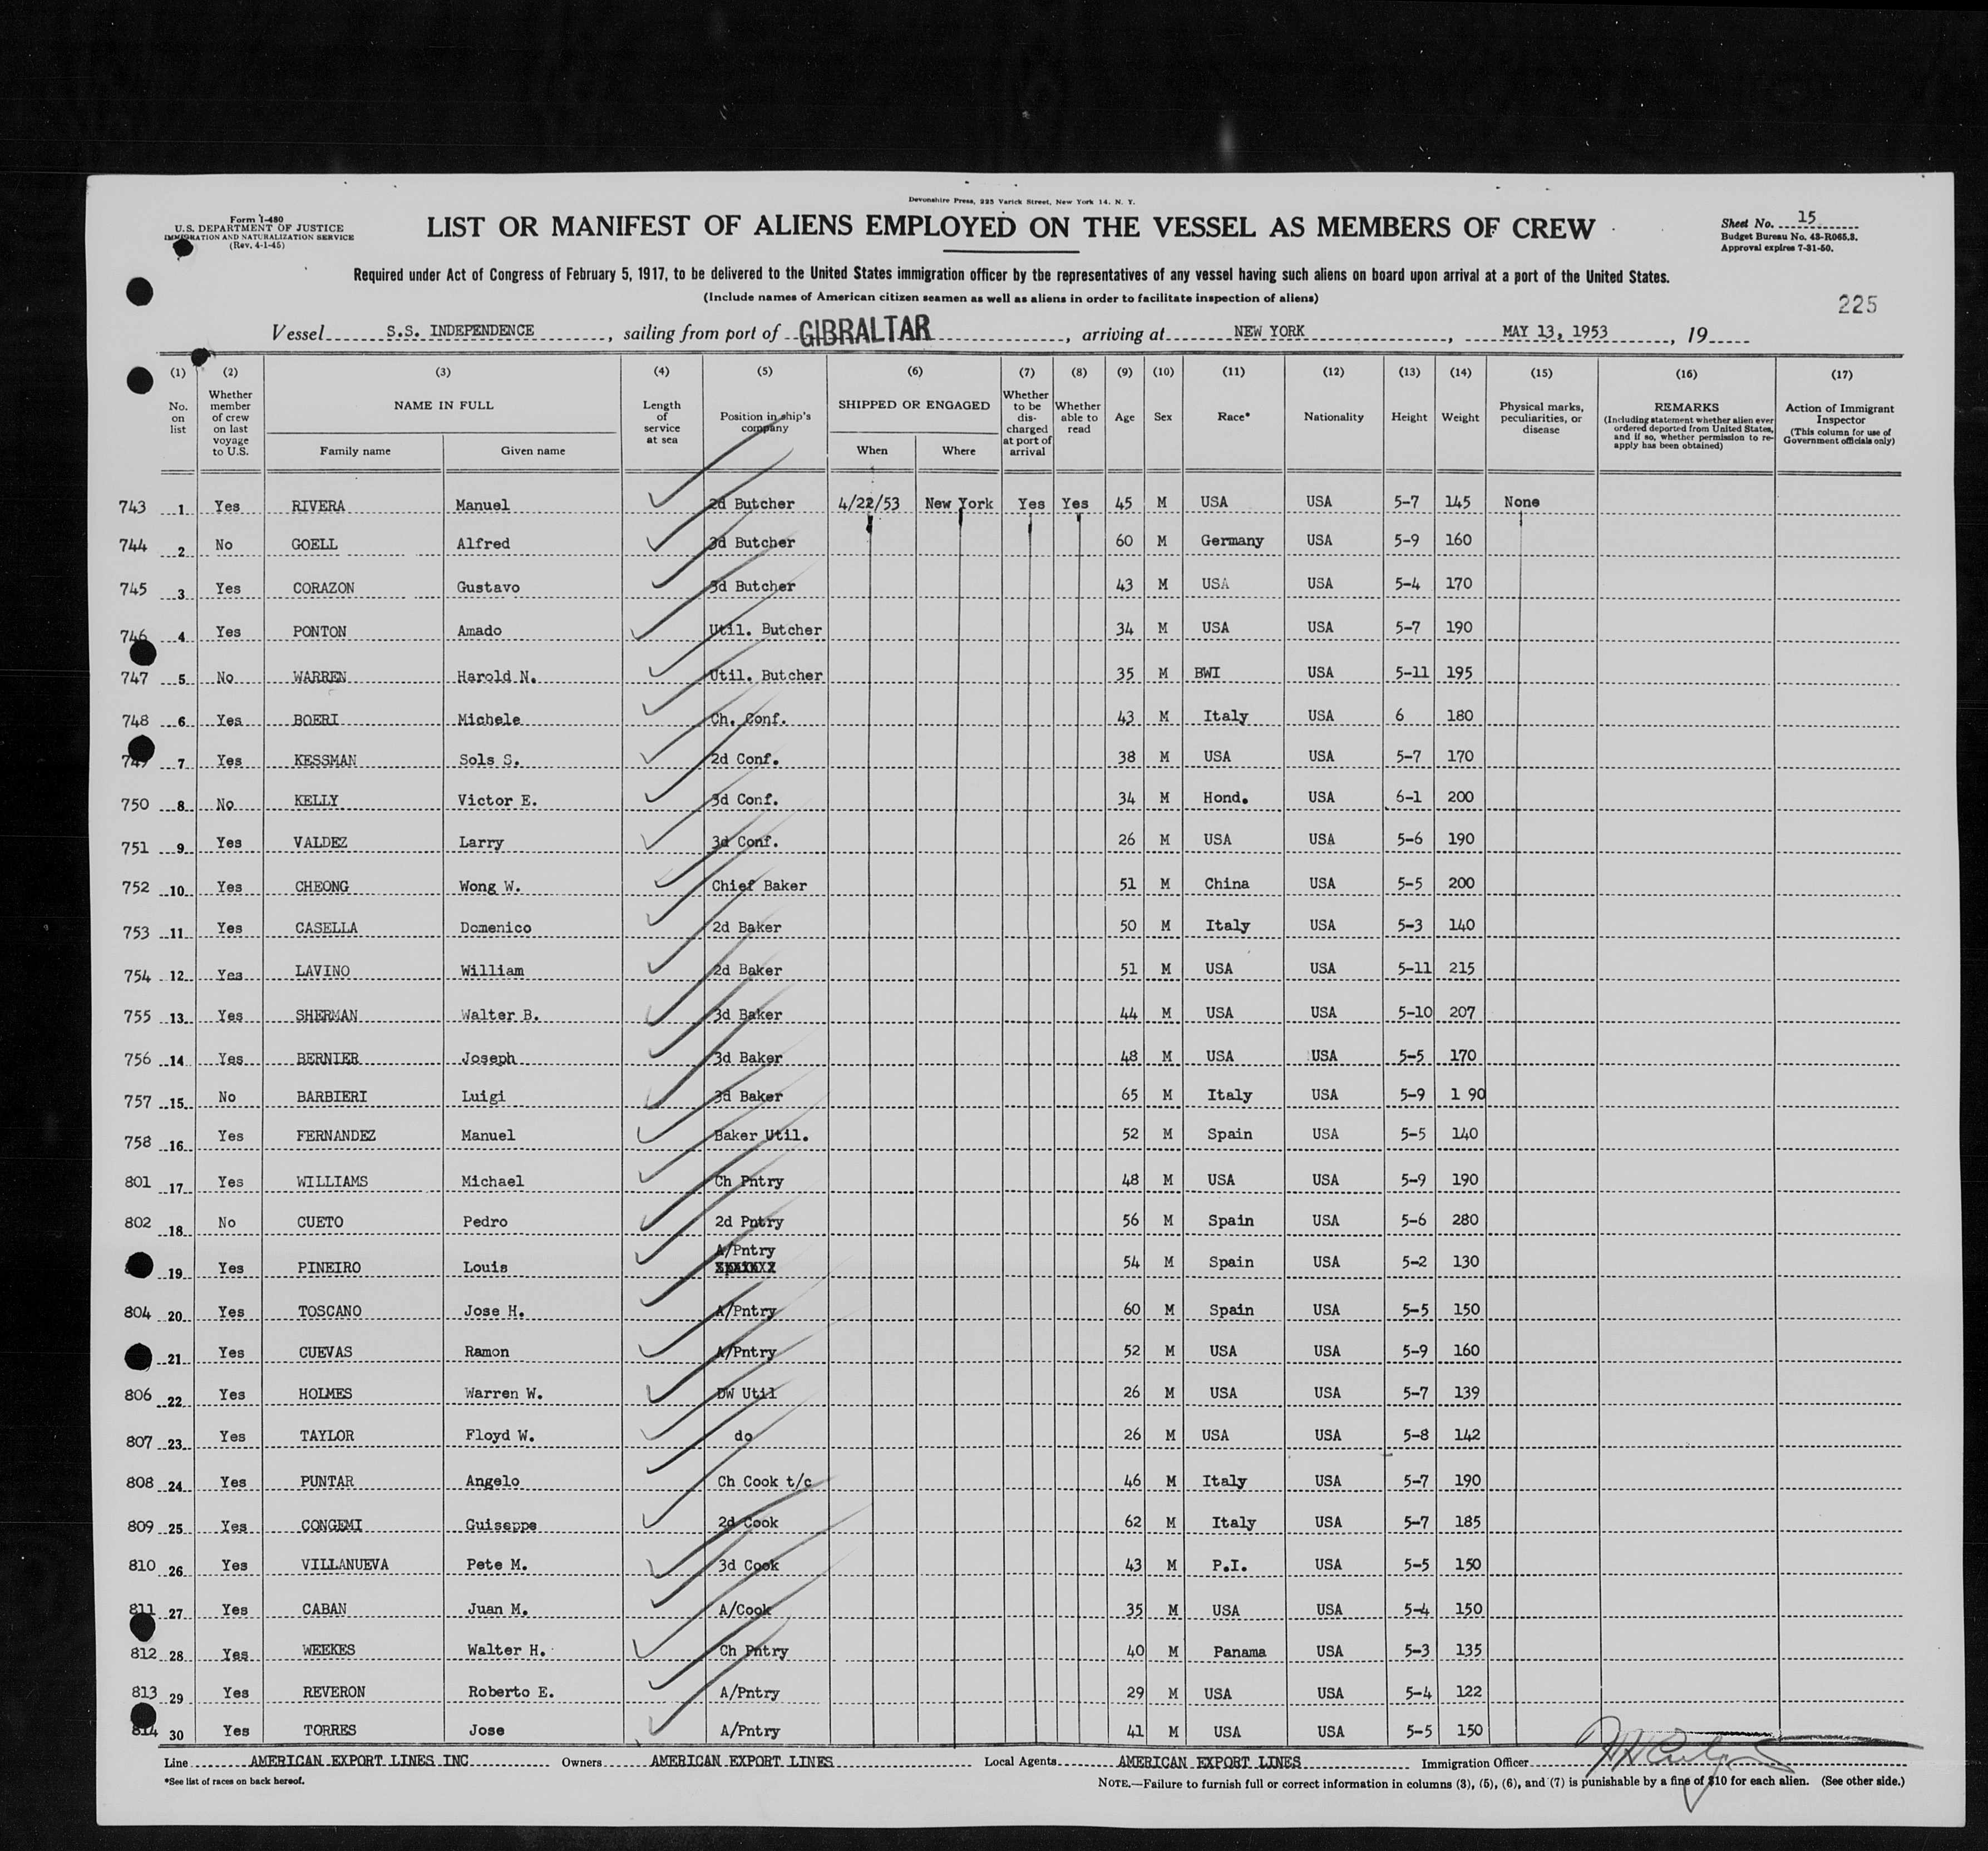 Devonshire Press, 225 Varick Street, New York 14, N. Y.
Form I-480
U.S. DEPARTMENT OF JUSTICE
IMMIGRATION AND NATURALIZATION SERVICE
(Rev. 4-1-45)
LIST OR MANIFEST OF ALIENS EMPLOYED ON THE VESSEL AS MEMBERS OF CREW
Sheet No. 15
Budget Bureau No. 43-R065.3.
Approval expires 7-31-50.
Required under Act of Congress of February 5, 1917, to be delivered to the United States immigration officer by the representatives of any vessel having such aliens on board upon arrival at a port of the United States.
(Include names of American citizen seamen as well as aliens in order to facilitate inspection of aliens)
225
Vessel S.S. INDEPENDENCE, sailing from port of GIBRALTAR, arriving at NEW YORK, MAY 13, 1953, 19
(1) No. on list
(2) Whether member of crew on last voyage to U.S.
(3) NAME IN FULL Family name Given name
(4) Length of service at sea
(5) Position in ship's company
(6) SHIPPED OR ENGAGED When Where
(7) Whether to be discharged at port of arrival
(8) Whether able to read
(9) Age
(10) Sex
(11) Race*
(12) Nationality
(13) Height
(14) Weight
(15) Physical marks, peculiarities, or disease
(16) REMARKS (Including statement whether alien ever ordered deported from United States, and if so, whether permission to re-apply has been obtained)
(17) Action of Immigrant Inspector (This column for use of Government officials only)
743 1 Yes RIVERA Manuel 2d Butcher 4/22/53 New York Yes Yes 45 M USA USA 5-7 145 None
744 2 No GOELL Alfred 3d Butcher 60 M Germany USA 5-9 160
745 3 Yes CORAZON Gustavo 3d Butcher 43 M USA USA 5-4 170
746 4 Yes PONTON Amado Util. Butcher 34 M USA USA 5-7 190
747 5 No WARREN Harold N. Util. Butcher 35 M BWI USA 5-11 195
748 6 Yes BOERI Michele Ch. Conf. 43 M Italy USA 6 180
749 7 Yes KESSMAN Sols S. 2d Conf. 38 M USA USA 5-7 170
750 8 No KELLY Victor E. 3d Conf. 34 M Hond. USA 6-1 200
751 9 Yes VALDEZ Larry 3d Conf. 26 M USA USA 5-6 190
752 10 Yes CHEONG Wong W. Chief Baker 51 M China USA 5-5 200
753 11 Yes CASELLA Domenico 2d Baker 50 M Italy USA 5-3 140
754 12 Yes LAVINO William 2d Baker 51 M USA USA 5-11 215
755 13 Yes SHERMAN Walter B. 3d Baker 44 M USA USA 5-10 207
756 14 Yes BERNIER Joseph 3d Baker 48 M USA USA 5-5 170
757 15 No BARBIERI Luigi 3d Baker 65 M Italy USA 5-9 1 90
758 16 Yes FERNANDEZ Manuel Baker Util. 52 M Spain USA 5-5 140
801 17 Yes WILLIAMS Michael Ch Pntry 48 M USA USA 5-9 190
802 18 No CUETO Pedro 2d Pntry 56 M Spain USA 5-6 280
19 Yes PINEIRO Louis A/Pntry 54 M Spain USA 5-2 130
804 20 Yes TOSCANO Jose H. A/Pntry 60 M Spain USA 5-5 150
21 Yes CUEVAS Ramon A/Pntry 52 M USA USA 5-9 160
806 22 Yes HOLMES Warren W. DW Util 26 M USA USA 5-7 139
807 23 Yes TAYLOR Floyd W. do 26 M USA USA 5-8 142
808 24 Yes PUNTAR Angelo Ch Cook t/c 46 M Italy USA 5-7 190
809 25 Yes CONGEMI Guiseppe 2d Cook 62 M Italy USA 5-7 185
810 26 Yes VILLANUEVA Pete M. 3d Cook 43 M P.I. USA 5-5 150
811 27 Yes CABAN Juan M. A/Cook 35 M USA USA 5-4 150
812 28 Yes WEEKES Walter H. Ch Pntry 40 M Panama USA 5-3 135
813 29 Yes REVERON Roberto E. A/Pntry 29 M USA USA 5-4 122
814 30 Yes TORRES Jose A/Pntry 41 M USA USA 5-5 150
Line AMERICAN EXPORT LINES INC. Owners AMERICAN EXPORT LINES Local Agents AMERICAN EXPORT LINES Immigration Officer
*See list of races on back hereof.
NOTE.—Failure to furnish full or correct information in columns (3), (5), (6), and (7) is punishable by a fine of $10 for each alien. (See other side.)